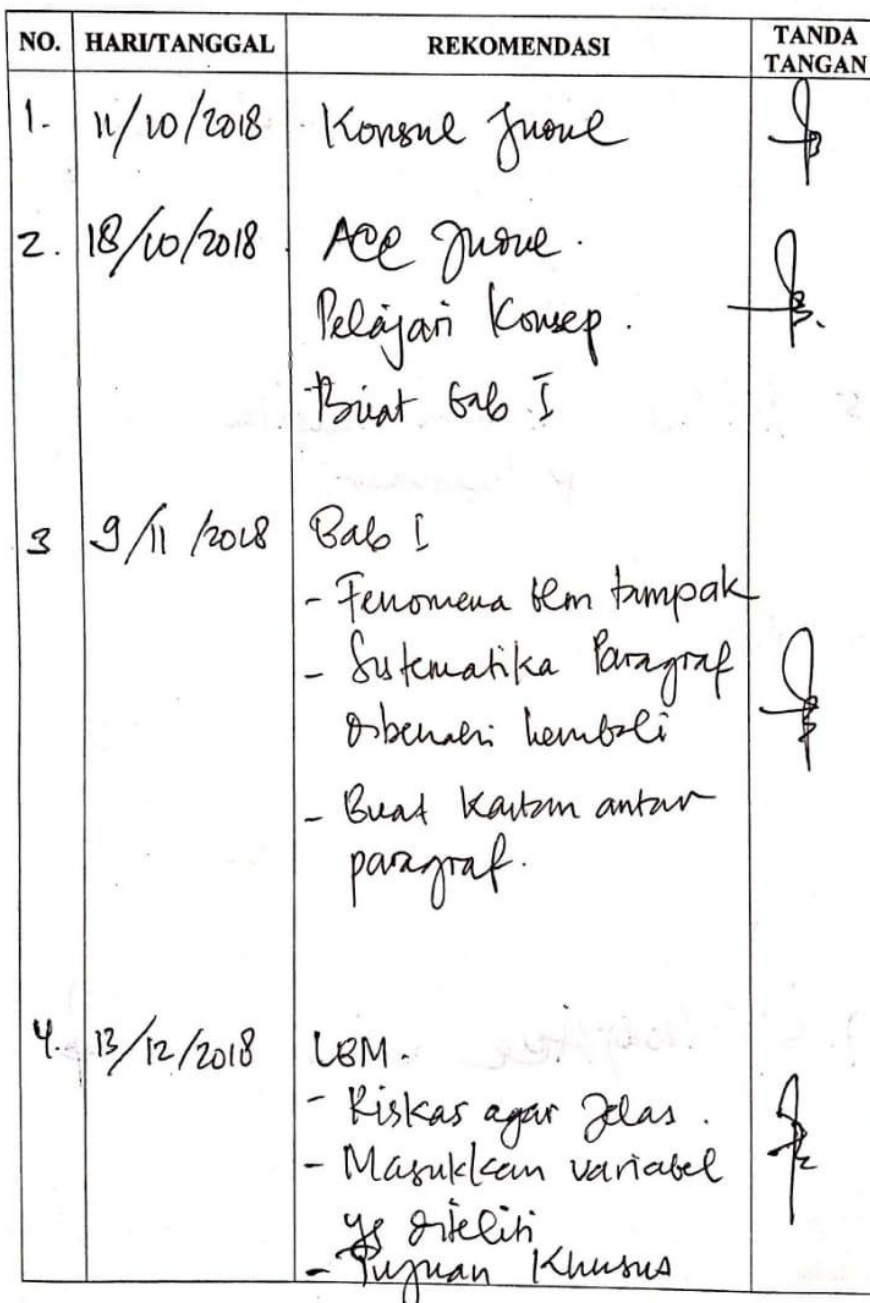 NO. HARI/TANGGAL REKOMENDASI TANDA TANGAN
1. 11/10/2018 Konsul Judul
2. 18/10/2018 ACC Judul.
Pelajari Konsep.
Buat Bab I
3 9/11/2018 Bab I
- Fenomena blm tampak
- Sistematika Paragraf
dibenahi kembali
- Buat Kaitan antar
paragraf.
4. 13/12/2018 LBM.
- Riskas agar Jelas.
- Masukkan variabel
yg diteliti
- Tujuan Khusus